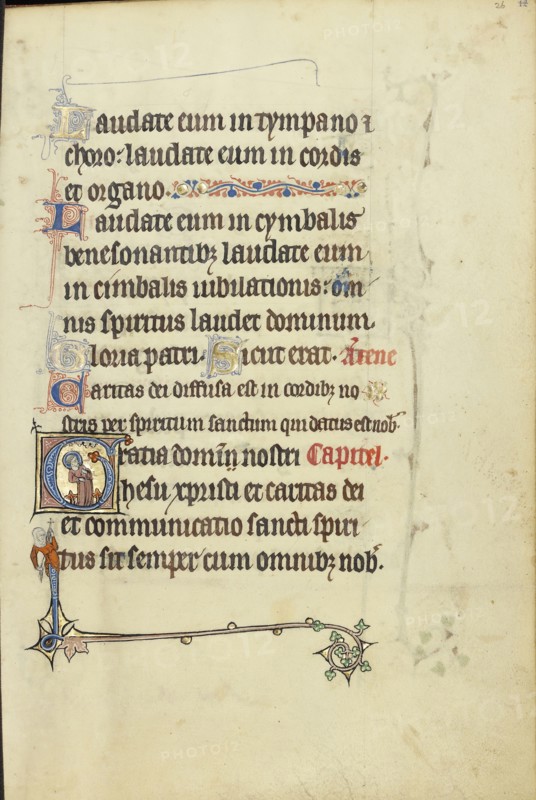 26
Laudate eum in tympano ⁊
choro: laudate eum in cordis
et organo.
Laudate eum in cymbalis
benesonantibꝫ laudate eum
in cimbalis iubilationis: om̄
nis spiritus laudet dominum.
Gloria patri. Sicut erat.
Caritas dei diffusa est in cordibꝫ no
stris per spiritum sanctum qui datus est nob̄
Gratia domini nostri Capitel.
ihesu xpristi et caritas dei
et communicatio sancti spiri
tus sit semper cum omnibꝫ nob̄.